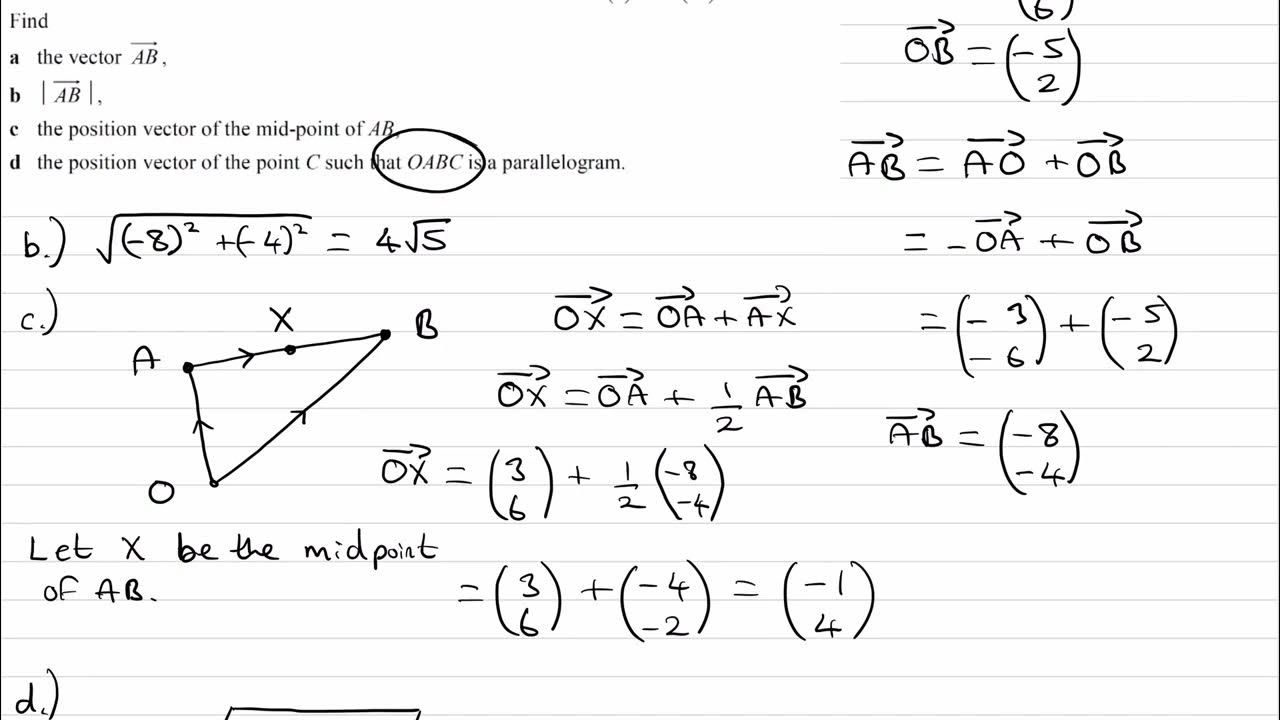 Find
a the vector AB→,
b |AB→|,
c the position vector of the mid-point of AB,
d the position vector of the point C such that OABC is a parallelogram.
6)
OB→ = (-5
2)
AB→ = AO→ + OB→
= -OA→ + OB→
= (-3
-6) + (-5
2)
AB→ = (-8
-4)
b.) √(-8)² + (-4)² = 4√5
c.)
X
A
B
O
OX→ = OA→ + AX→
OX→ = OA→ + 1/2 AB→
OX→ = (3
6) + 1/2 (-8
-4)
Let X be the midpoint
of AB.
= (3
6) + (-4
-2) = (-1
4)
d.)